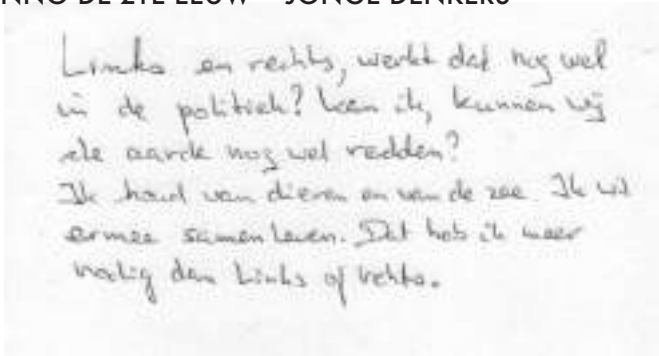 ANNO DE 21E EEUW – JONGE DENKERS
Links en rechts, werkt dat nog wel
in de politiek? Kan ik, kunnen wij
de aarde nog wel redden?
Ik houd van dieren en van de zee. Ik wil
ermee samen leven. Dat heb ik meer
nodig dan Links of rechts.